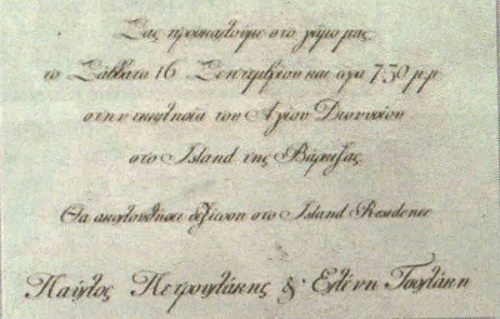 Σας προσκαλούμε στο γάμο μας
το Σάββατο 16 Σεπτεμβρίου και ώρα 7:30 μ.μ
στην εκκλησία του Αγίου Διονυσίου
στο Island της Βάρκιζας.
Θα ακολουθήσει δεξίωση στο Island Residence
Παύλος Πετρουλάκης & Ελένη Τσολάκη